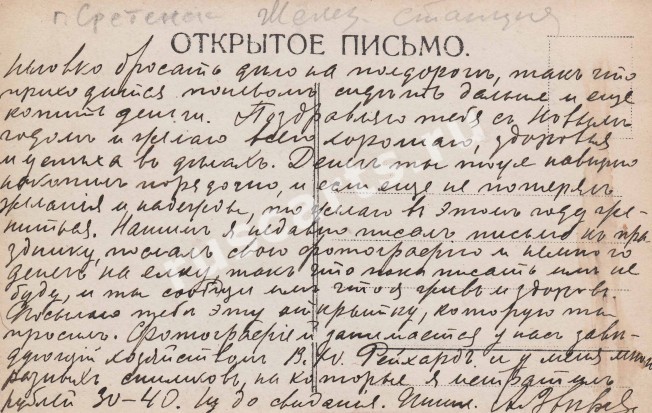 г. Сретенск Желез. станция
ОТКРЫТОЕ ПИСЬМО.
неловко бросать дѣло на полдорогѣ, такъ что
приходится поневолѣ сидѣть дальше и еще
копить деньги. Поздравляю тебя съ Новымъ
годомъ и желаю всего хорошаго, здоровья
и успѣха въ дѣлахъ. Денегъ ты тоже навѣрно
накопилъ порядочно, и если еще не потерялъ
желанія и надежды, то желаю въ этомъ году же-
ниться. Нашимъ я недавно писалъ письмо къ пра-
здднику, послалъ свою фотографію и немного
денегъ на елку, такъ что пока писать имъ не
буду, и ты сообщи имъ что я живъ и здоровъ.
Посылаю тебѣ эту открытку, которую ты
просилъ. Фотографіей занимается у насъ завѣ-
дующій хозяйствомъ В. Рейхардъ и у меня много
разныхъ снимковъ, на которые я истратилъ
рублей 30-40. до свиданія. Пиши.
ruscarts.ru